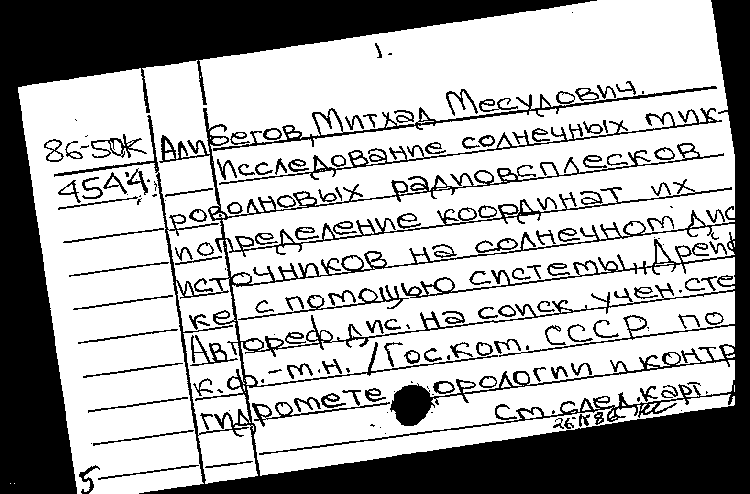 1.
86-50К Алибегов, Митхад Месудович.
4544 Исследование солнечных мик-
роволновых радиовсплесков
и определение координат их
источников на солнечном дис
ке с помощью системы „Дрейф
Автореф. дис. на соиск. учен. сте
к.ф.-м.н. / Гос. ком. СССР по
гидрометеорологии и контр
См. след. карт.
5